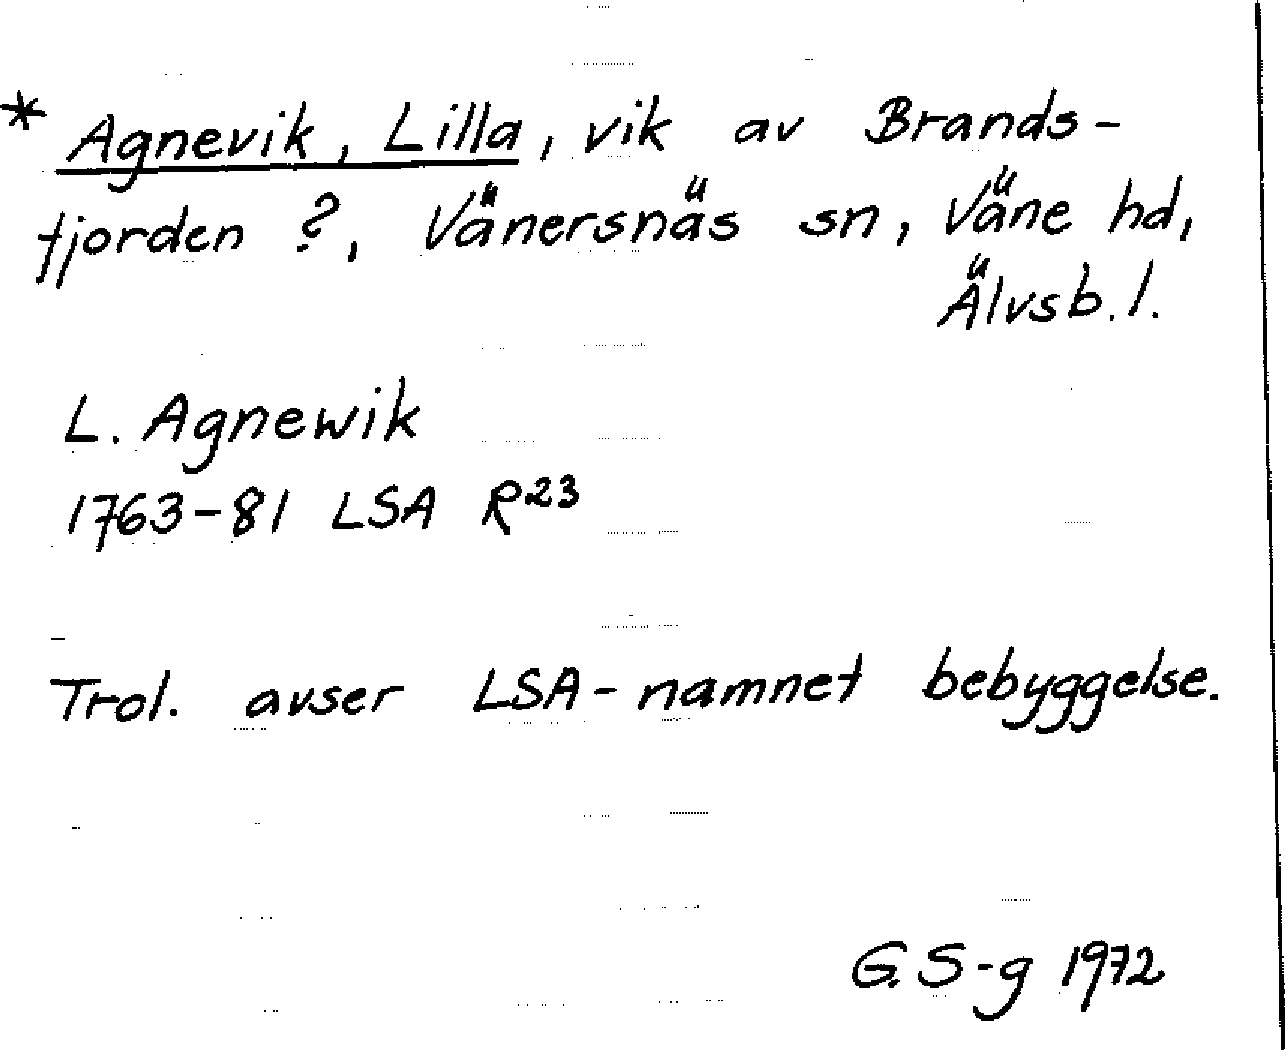 * Agnevik, Lilla, vik av Brands-
fjorden ?, Vänersnäs sn, Väne hd,
Älvsb. l.
L. Agnewik
1763-81 LSA R²³
Trol. avser LSA-namnet bebyggelse.
G. S-g 1972